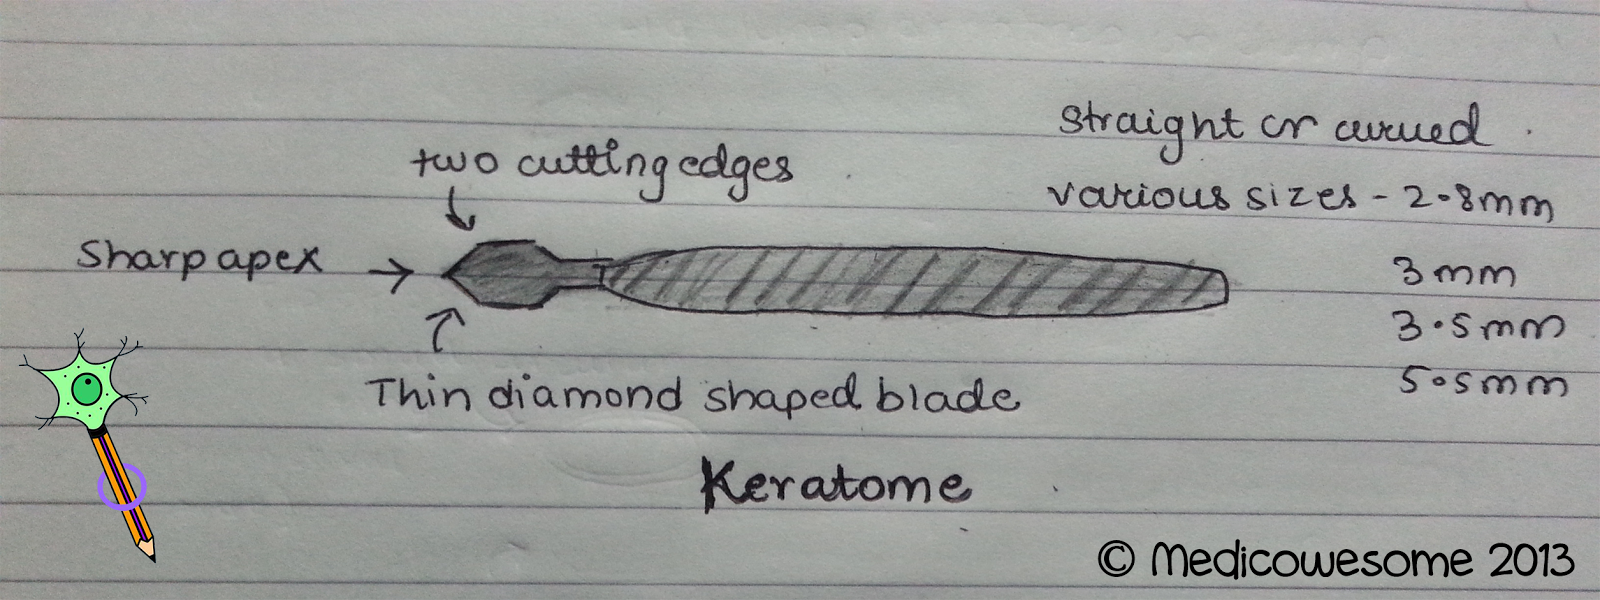 straight or curved
two cutting edges
various sizes - 2.8mm
Sharp apex
3mm
3.5mm
Thin diamond shaped blade
5.5mm
Keratome
© Medicowesome 2013